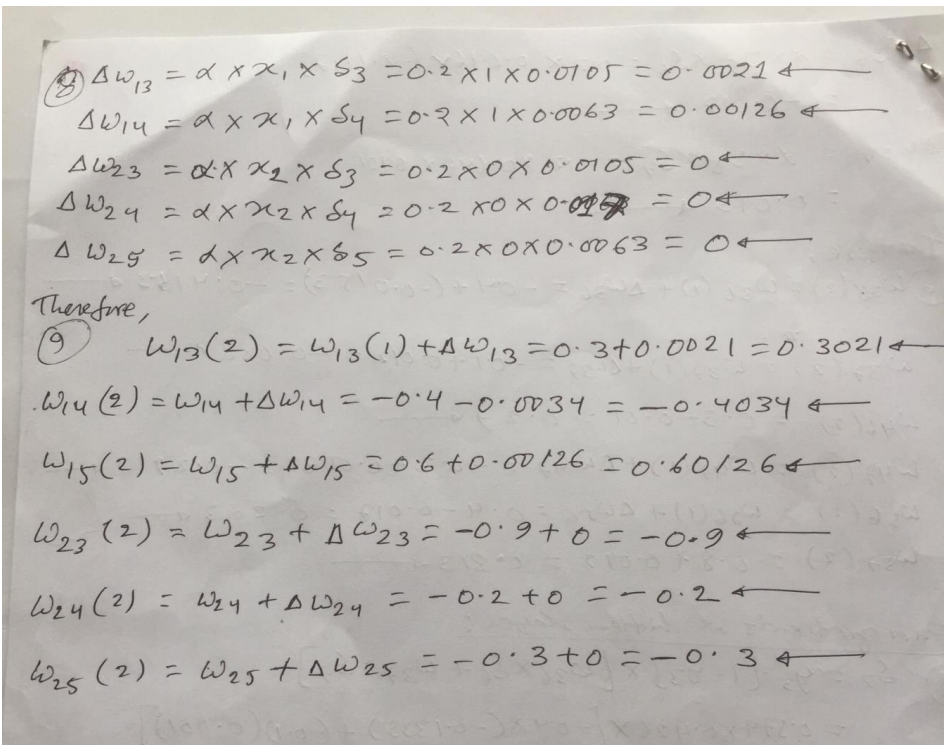 ⑧ Δw₁₃ = α × x₁ × δ₃ = 0.2 × 1 × 0.0105 = 0.0021 ←
Δw₁₄ = α × x₁ × δ₄ = 0.2 × 1 × 0.0063 = 0.00126 ←
Δw₂₃ = α × x₂ × δ₃ = 0.2 × 0 × 0.0105 = 0 ←
Δw₂₄ = α × x₂ × δ₄ = 0.2 × 0 × = 0 ←
Δw₂₅ = α × x₂ × δ₅ = 0.2 × 0 × 0.0063 = 0 ←
Therefore,
⑨ w₁₃(2) = w₁₃(1) + Δw₁₃ = 0.3 + 0.0021 = 0.3021 ←
w₁₄(2) = w₁₄ + Δw₁₄ = -0.4 - 0.0034 = -0.4034 ←
w₁₅(2) = w₁₅ + Δw₁₅ = 0.6 + 0.00126 = 0.60126 ←
w₂₃(2) = w₂₃ + Δw₂₃ = -0.9 + 0 = -0.9 ←
w₂₄(2) = w₂₄ + Δw₂₄ = -0.2 + 0 = -0.2 ←
w₂₅(2) = w₂₅ + Δw₂₅ = -0.3 + 0 = -0.3 ←